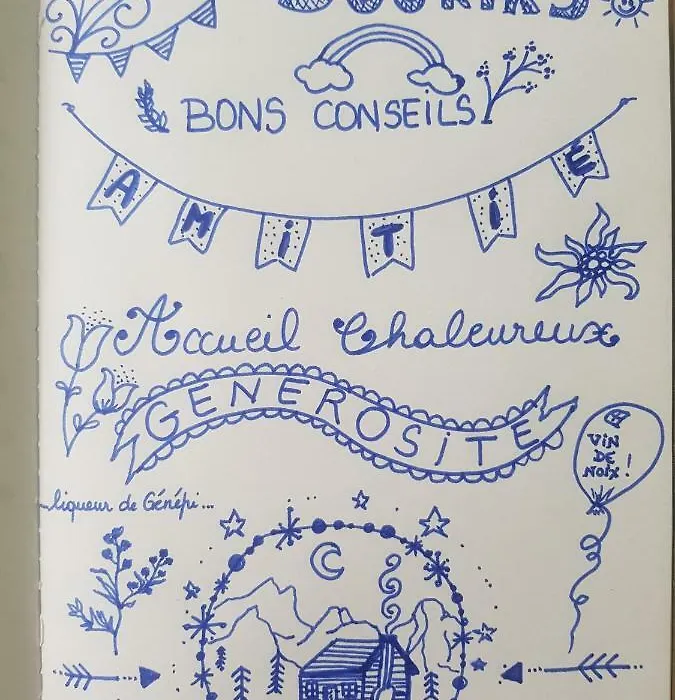 BONS CONSEiLS
AMiTiE
Accueil Chaleureux
GENEROSiTE
ViN
DE
NOiX !
liqueur de Génépi...